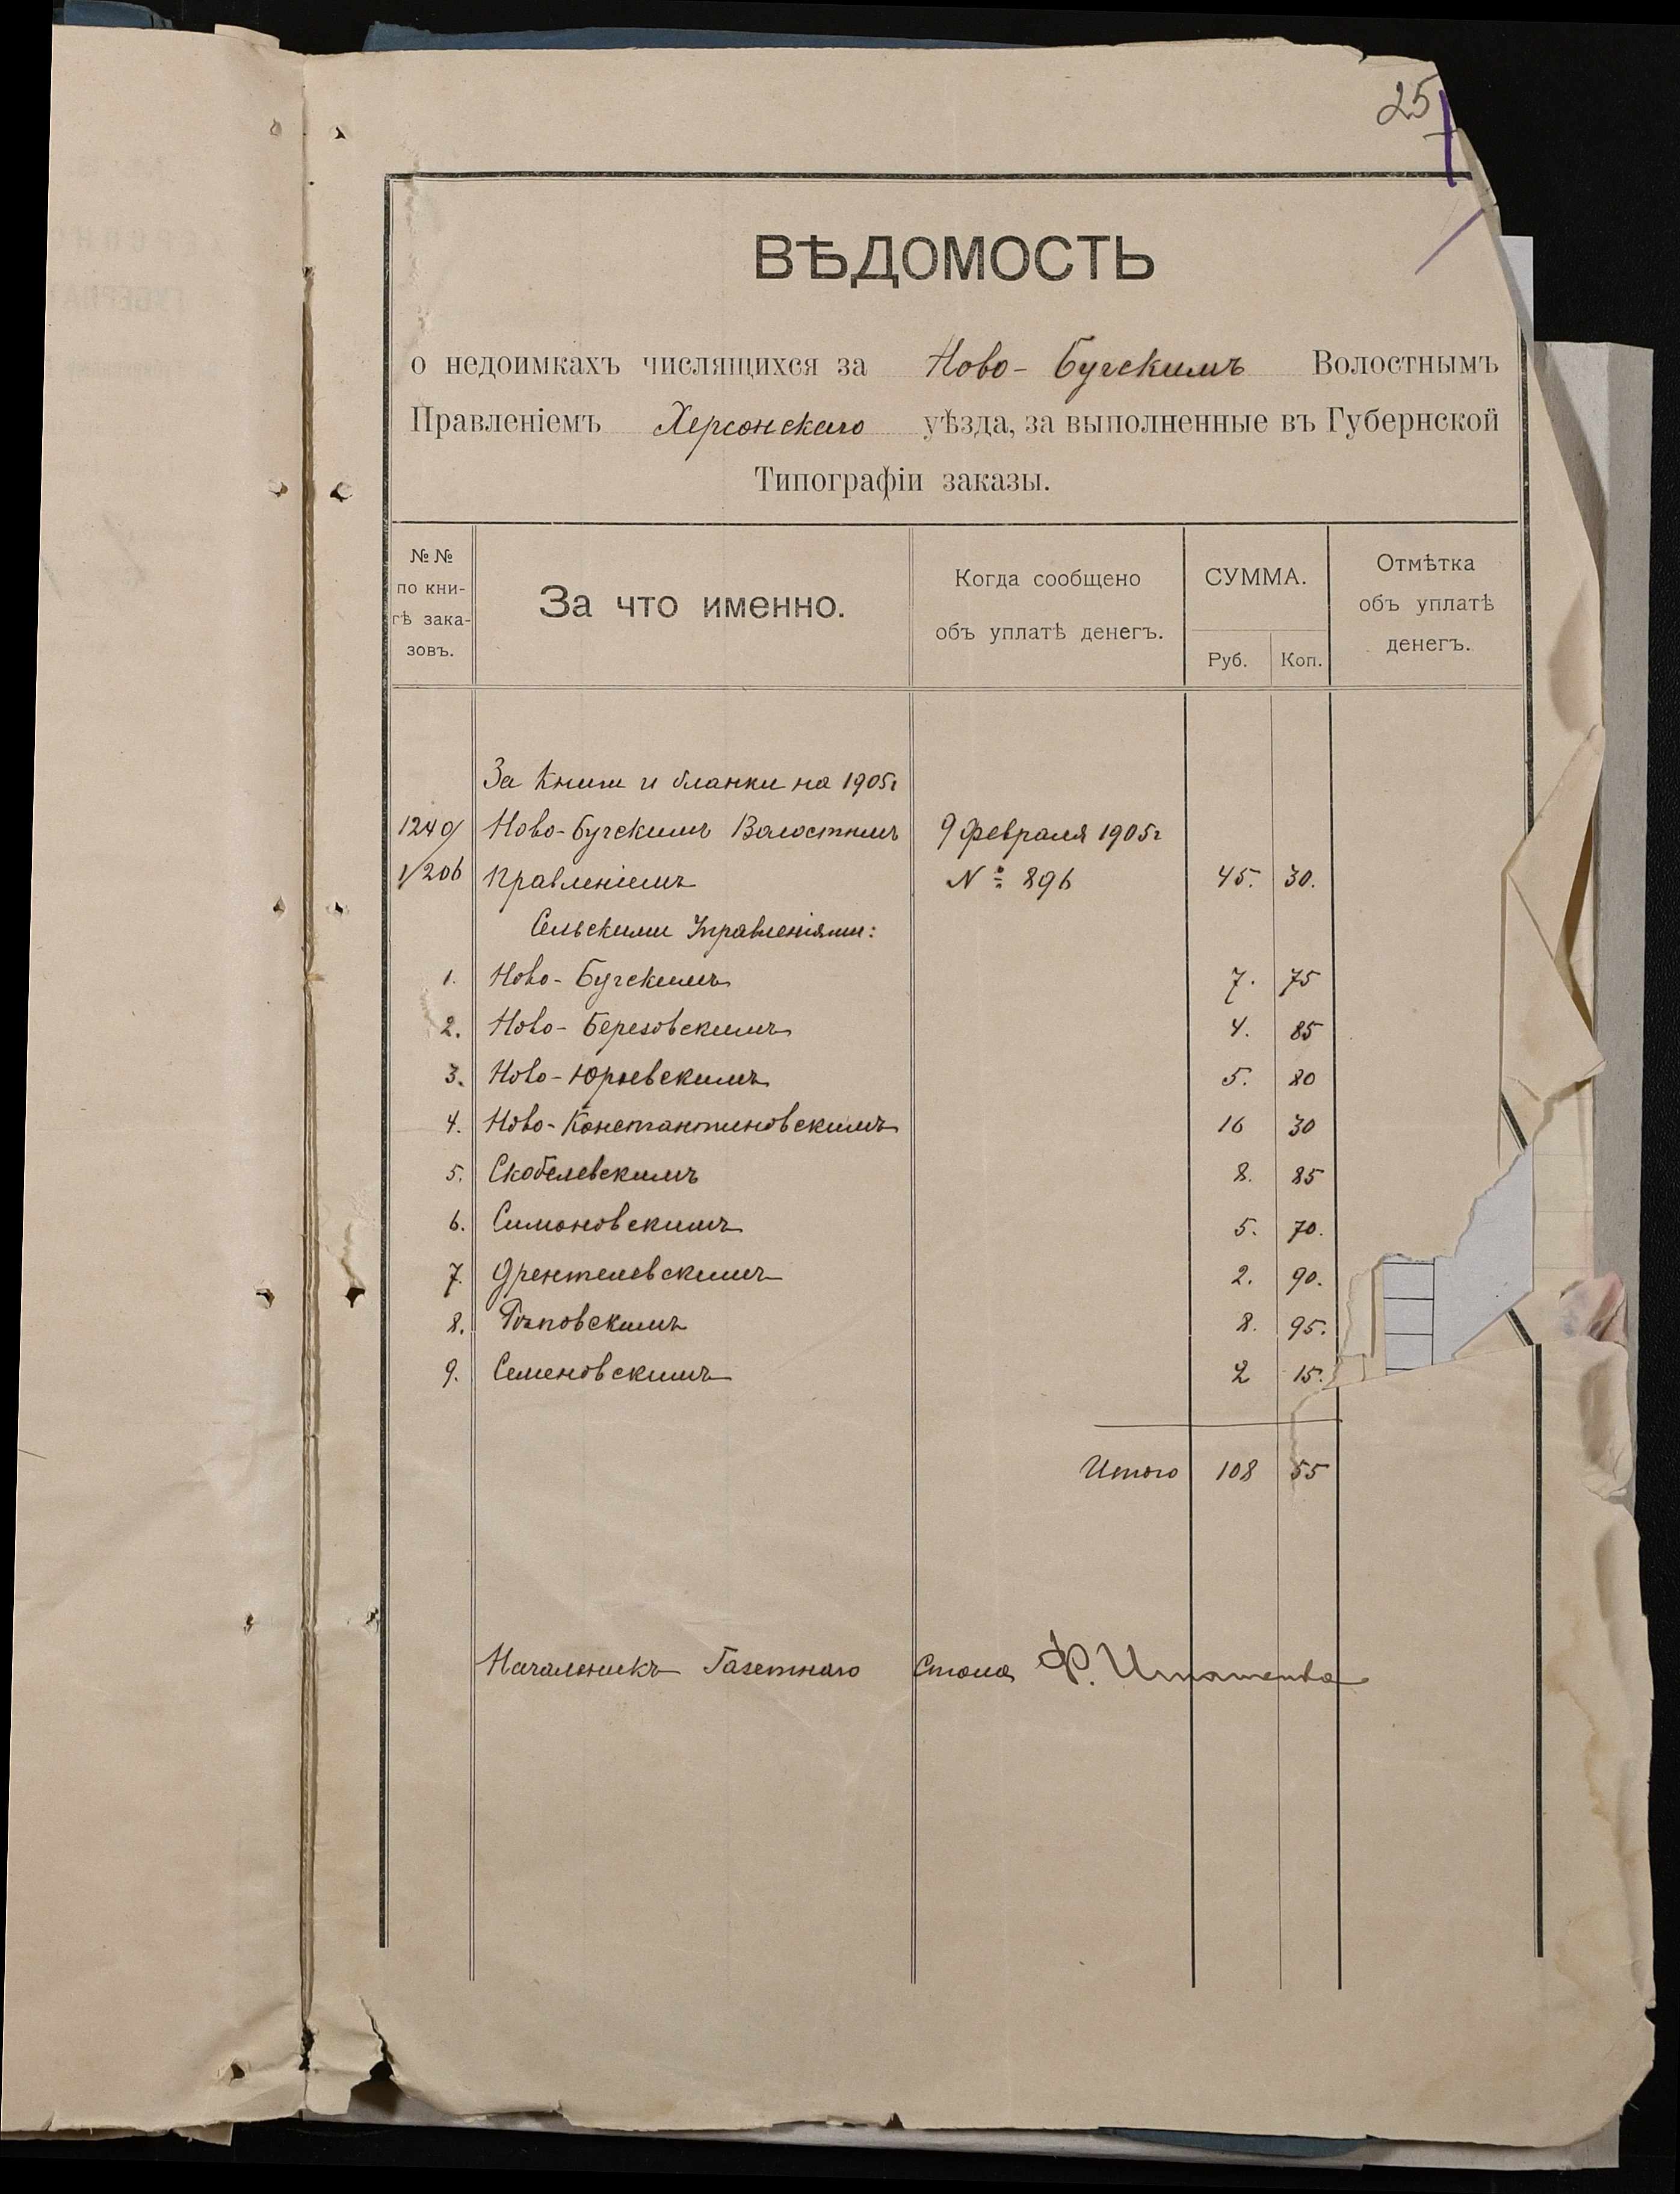 25
ВѢДОМОСТЬ
о недоимкахъ числящихся за Ново-Бугскимъ Волостнымъ
Правленіемъ Херсонскаго уѣзда, за выполненные въ Губернской
Типографіи заказы.
№№ по кни- гѣ зака- зовъ.
За что именно.
Когда сообщено объ уплатѣ денегъ.
СУММА.
Руб. Коп.
Отмѣтка объ уплатѣ денегъ.
За книги и бланки на 1905г
1249/ Ново-Бугскимъ Волостнымъ 9 февраля 1905г
1/206 Правленіемъ № 896 45. 30.
Сельскими Управленіями:
1. Ново-Бугскимъ 7. 75
2. Ново-Березовскимъ 4. 85
3. Ново-Юрьевскимъ 5. 80
4. Ново-Константиновскимъ 16 30
5. Скобелевскимъ 8. 85
6. Симоновскимъ 5. 70.
7. Дрентелевскимъ 2. 90.
8. 8. 95.
9. Семеновскимъ 2 15.
Итого 108 55
Начальникъ Газетнаго Стола Ф.